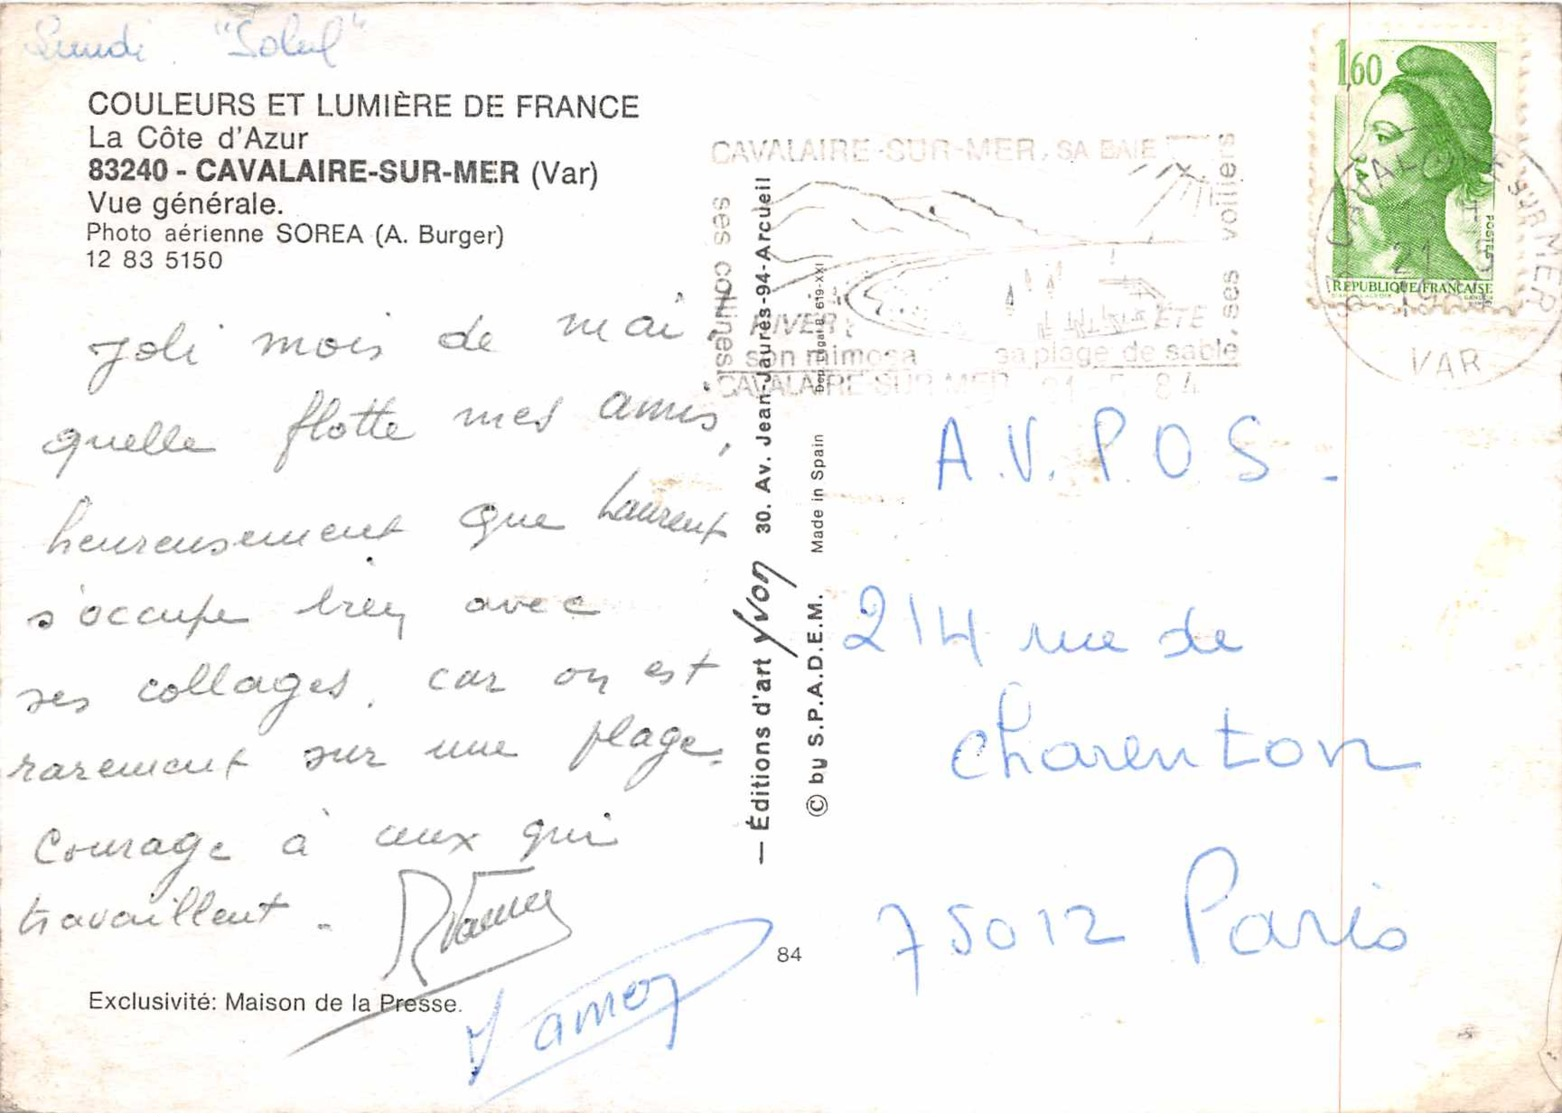 Lundi. "Soleil"
COULEURS ET LUMIÈRE DE FRANCE
La Côte d'Azur
83240 - CAVALAIRE-SUR-MER (Var)
Vue générale.
Photo aérienne SOREA (A. Burger)
12 83 5150
Joli mois de mai,
quelle flotte mes amis,
heureusement que Laurent
s'occupe bien avec
ses collages, car on est
rarement sur une plage.
Courage à ceux qui
travaillent.
Exclusivité: Maison de la Presse.
— Éditions d'art Yvon 30. Av. Jean-Jaurès-94-Arcueil
© by S.P.A.D.E.M. Made in Spain Dép. Légal B. 619-XXI
84
CAVALAIRE-SUR-MER, SA BAIE
ses collines
ses voiliers
HIVER ÉTÉ
son mimosa sa plage de sable
CAVALAIRE-SUR-MER 21-5-84
1,60
POSTES
RÉPUBLIQUE FRANÇAISE
CAVALAIRE SUR MER
21
VAR
A.V.P.O.S.
214 rue de
Charenton
75012 Paris